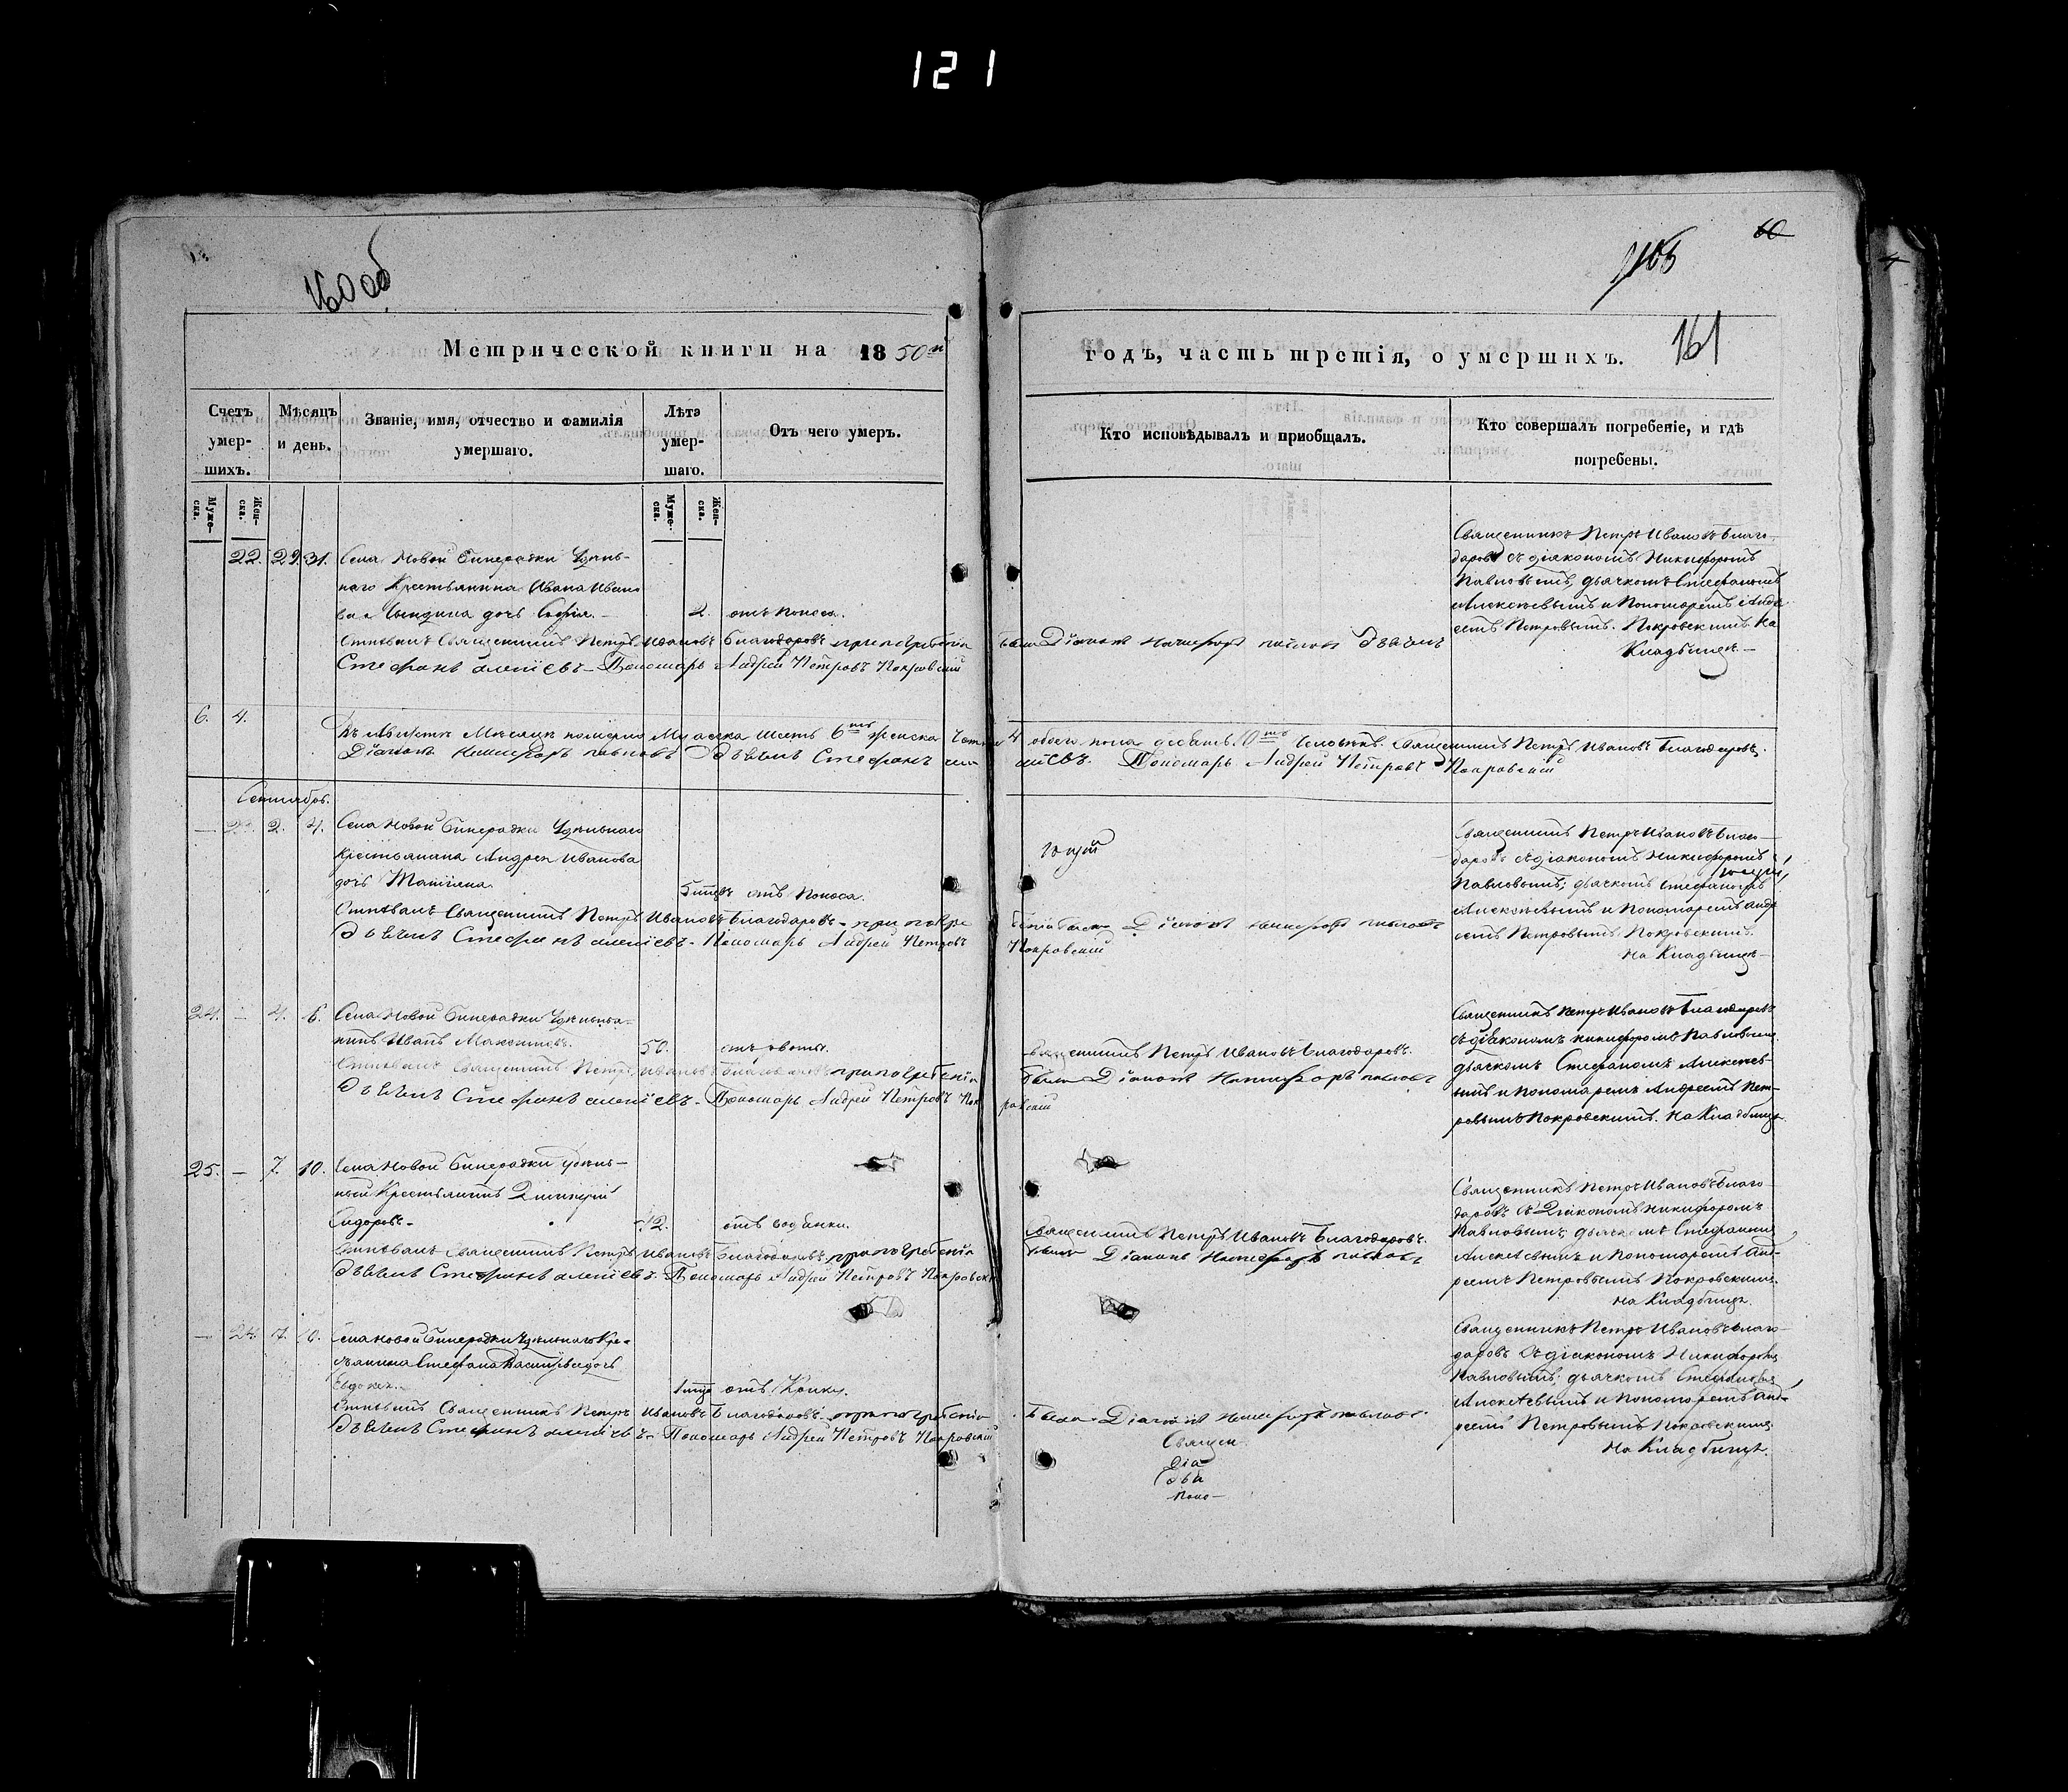 121
160 об
60
165
161
Метрической книги на 1850й
годъ, часть третія, о умершихъ.
Счетъ умер-шихъ.
Мѣсяцъ и день.
Званіе, имя, отчество и фамилія умершаго.
Лѣта умер-шаго.
Отъ чего умеръ.
Кто исповѣдывалъ и приобщалъ.
Кто совершалъ погребеніе, и гдѣ погребены.
Муже-ска.
Жен-ска.
Муже-ска.
Жен-ска.
22. 29. 31. Села Новой Бинарадки Удѣль-
наго Крестьянина Ивана Ивано
ва дочь Софія.
2. отъ поноса.
Отпѣвалъ Священникъ Петръ Ивановъ Благодаровъ при погребеніи
были Діаконъ Никифоръ Павловъ Дьячокъ
Стефанъ Алексіевъ Пономарь Андрей Петровъ Покровскій
Священникъ Петръ Ивановъ Благо-
даровъ съ діакономъ Никифоромъ
Павловымъ, дьячкомъ Стефаномъ
Алексѣевымъ и Пономаремъ Андре
емъ Петровымъ Покровскимъ. На
Кладбищѣ
6. 4.
Въ Августѣ Мѣсяцѣ померло Мужеска шесть 6ть женска четыре
4 обоего пола десять 10ть человѣкъ. Священникъ Петръ Ивановъ Благодаровъ.
Діаконъ Никифоръ Павловъ Дьячокъ Стефанъ Алек
сіевъ. Пономарь Андрей Петровъ Покровскій
Сентябрь.
— 23. 2. 4. Села Новой Бинарадки Удѣльнаго
Крестьянина Андрея Иванова
дочь Татіана
5 отъ поноса.
Отпѣвалъ Священникъ Петръ Ивановъ Благодаровъ при погре
беніи были Діаконъ Никифоръ Павловъ
Дьячокъ Стефанъ Алексіевъ Пономарь Андрей Петровъ
Покровскій
Священникъ Петръ Ивановъ Благо-
даровъ съ діакономъ Никифоромъ
Павловымъ, дьячкомъ Стефаномъ
Алексѣевымъ и Пономаремъ Андре
емъ Петровымъ Покровскимъ.
На Кладбищѣ
24. — 4. 6. Села Новой Бинарадки
Иванъ Максимовъ.
50. отъ рвоты.
Отпѣвалъ Священникъ Петръ Ивановъ Благодаровъ при погребеніи
Дьячокъ Стефанъ Алексіевъ Пономарь Андрей Петровъ Пок
ровскій
Священникъ Петръ Ивановъ Благодаровъ.
были Діаконъ Никифоръ Павловъ
Священникъ Петръ Ивановъ Благодаровъ
съ діакономъ Никифоромъ Павловымъ
дьячкомъ Стефаномъ Алексѣе-
вымъ и пономаремъ Андреемъ Пет-
ровымъ Покровскимъ. На Кладбищѣ
25. — 7. 10. Села Новой Бинарадки удѣль-
ный Крестьянинъ Димитрій
Сидоровъ
12. отъ водянки.
Отпѣвалъ Священникъ Петръ Ивановъ Благодаровъ при погребеніи
Дьячокъ Стефанъ Алексіевъ. Пономарь Андрей Петровъ Покровскій
Священникъ Петръ Ивановъ Благодаровъ.
были Діаконъ Никифоръ Павловъ
Священникъ Петръ Ивановъ Благо
даровъ съ Діакономъ Никифоромъ
Павловымъ, дьячкомъ Стефаномъ
Алексѣевымъ и Пономаремъ Анд-
реемъ Петровымъ Покровскимъ.
На Кладбищѣ.
— 24. 7. 10. Села Новой Бинарадки Удѣльнаго Кре-
стьянина Стефана Васильева дочь
1 отъ
Отпѣвалъ Священникъ Петръ Ивановъ Благодаровъ при погребеніи
были Діаконъ Никифоръ Павловъ
Дьячокъ Стефанъ Алексіевъ Пономарь Андрей Петровъ Покровскій
Священ
Діа
Дья
Поно
Священникъ Петръ Ивановъ Благо-
даровъ съ діакономъ Никифоромъ
Павловымъ, дьячкомъ Стефаномъ
Алексѣевымъ и Пономаремъ Анд-
реемъ Петровымъ Покровскимъ
На Кладбищѣ.